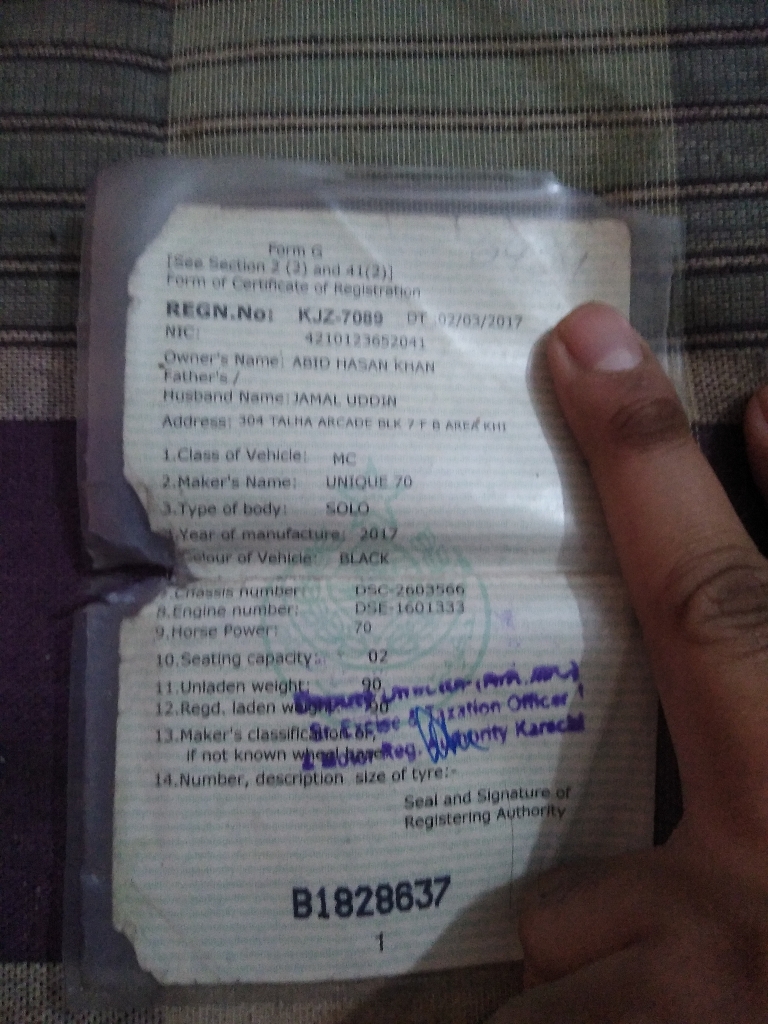 Form G
[See Section 2 (2) and 41(2)]
Form of Certificate of Registration
REGN.No: KJZ-7089 DT :02/03/2017
NIC: 4210123652041
Owner's Name: ABID HASAN KHAN
Father's /
Husband Name: JAMAL UDDIN
Address: 304 TALHA ARCADE BLK 7 F B AREA KHI
1.Class of Vehicle: MC
2.Maker's Name: UNIQUE 70
3.Type of body: SOLO
4.Year of manufacture: 2017
Colour of Vehicle: BLACK
7.Chassis number: DSC-2603566
8.Engine number: DSE-1601333
9.Horse Power: 70
10.Seating capacity: 02
11.Unladen weight: 90
12.Regd. laden weight: 90
Excise & Taxation Officer
13.Maker's classification or,
if not known wheel base
Motor Reg. Authority Karachi
14.Number, description size of tyre:-
Seal and Signature of
Registering Authority
B1828637
1